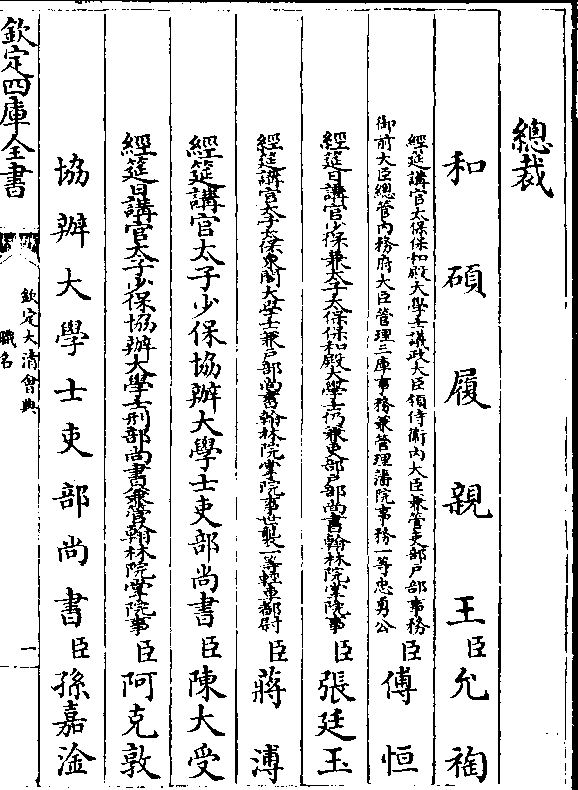 總裁
和碩履親王臣允祹
經筵講官太保保和殿大學士議政大臣領侍衛內大臣兼管吏部戶部事務
御前大臣總管內務府大臣管理三庫事務兼管理藩院事務一等忠勇公臣傅恒
經筵日講官少保兼太子太保保和殿大學士仍兼吏部戶部尚書翰林院掌院事臣張廷玉
經筵講官太子太保東閣大學士兼戶部尚書翰林院掌院事世襲一等輕車都尉臣蔣溥
經筵講官太子少保協辦大學士吏部尚書臣陳大受
經筵日講官太子少保協辦大學士刑部尚書兼管翰林院掌院事臣阿克敦
協辦大學士吏部尚書臣孫嘉淦
欽定四庫全書
欽定大清會典
職名
一